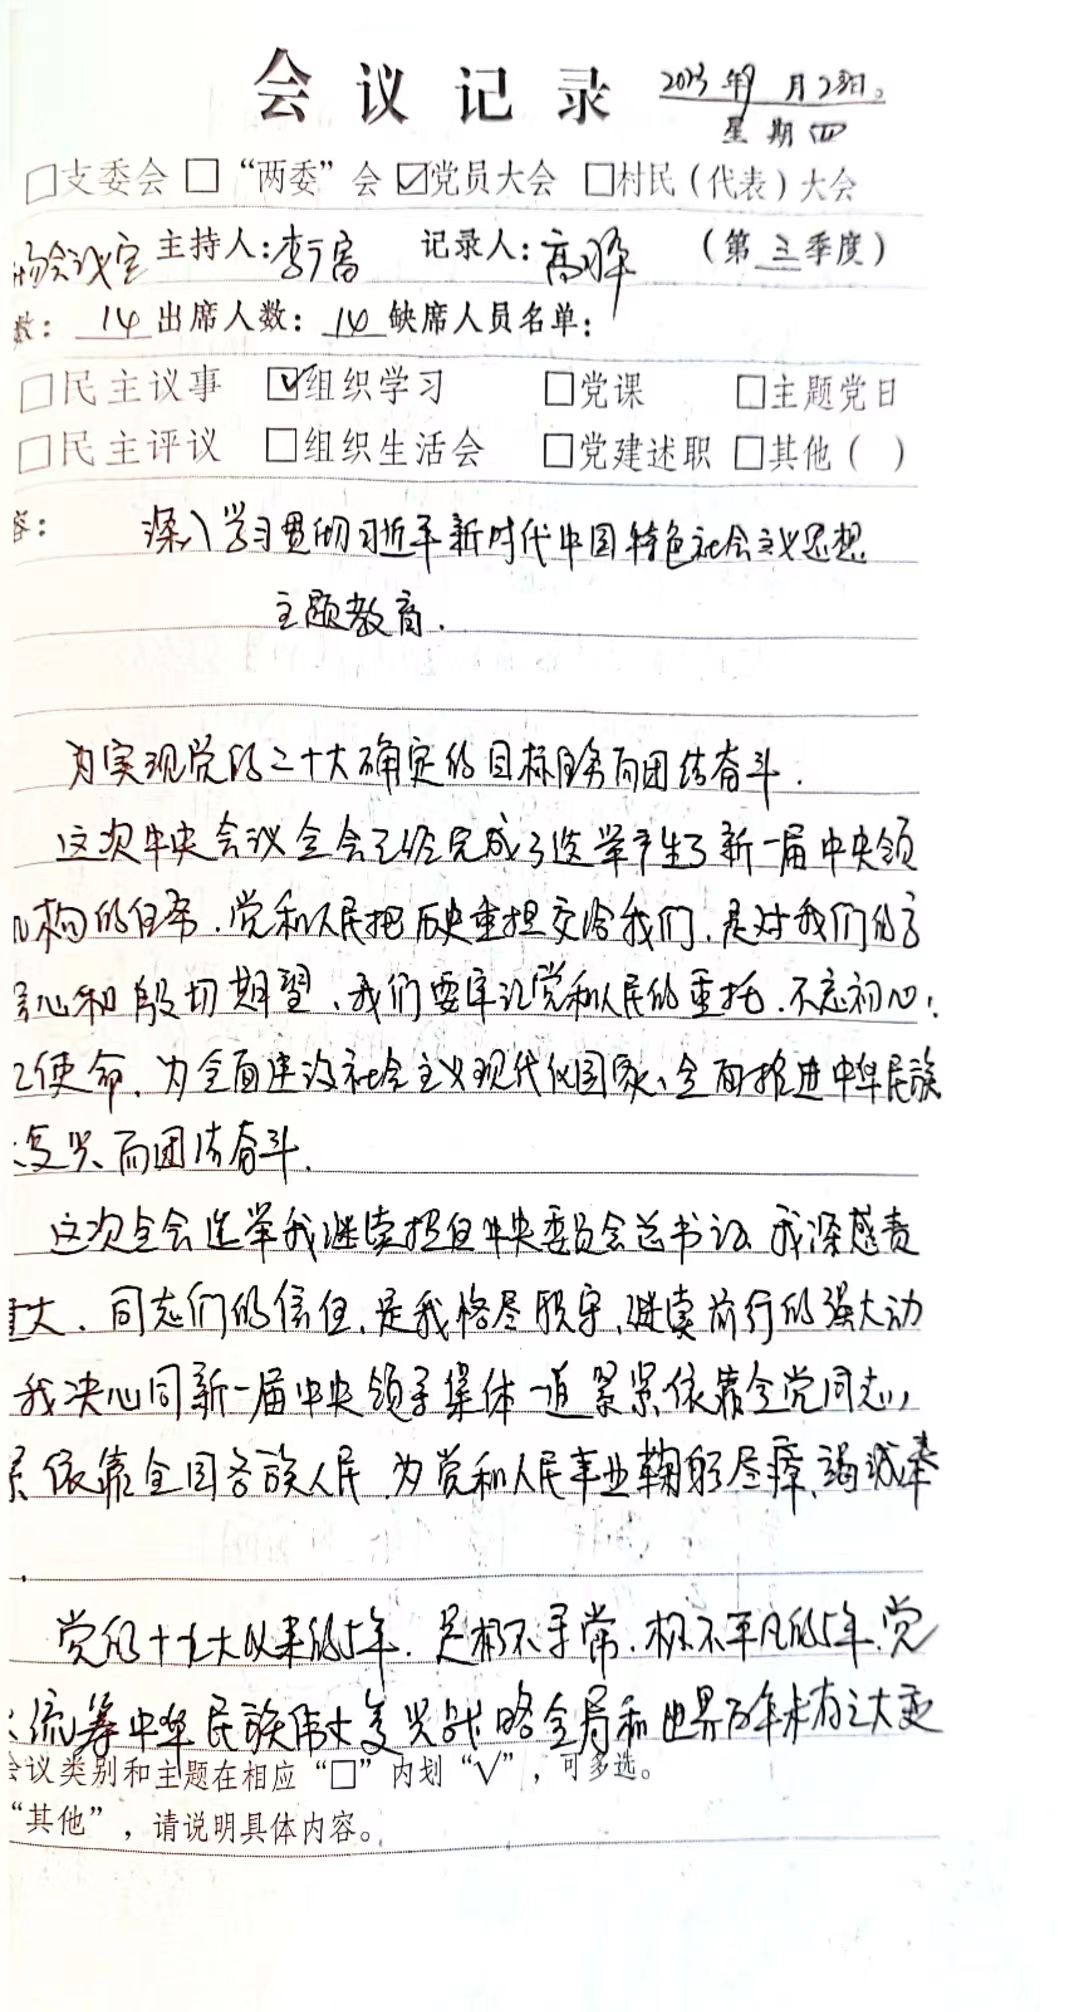 会议记录 2023年9月28日。
星期四
□支委会 □“两委”会 ☑党员大会 □村民（代表）大会
会议室 主持人：李于富 记录人： （第三季度）
数：14出席人数：14缺席人员名单：
□民主议事 ☑组织学习 □党课 □主题党日
□民主评议 □组织生活会 □党建述职 □其他（ ）
容： 深入学习贯彻习近平新时代中国特色社会主义思想
主题教育.
为实现党的二十大确定的目标任务而团结奋斗.
这次中央会议全会已经完成了选举产生了新一届中央领
构的任务.党和人民把历史重担交给我们、是对我们的
心和殷切期望、我们要牢记党和人民的重托.不忘初心.
使命.为全面建设社会主义现代化国家、全面推进中华民族
复兴而团结奋斗.
这次全会选举我继续担任中央委员会总书记 我深感责
大.同志们的信任.是我恪尽职守、继续前行的强大动
我决心同新一届中央领导集体一道紧紧依靠全党同志,
依靠全国各族人民.为党和人民事业鞠躬尽瘁、竭诚奉
.
党的十九大以来的5年.是极不寻常.极不平凡的5年.党
统筹中华民族伟大复兴战略全局和世界百年未有之大变
会议类别和主题在相应“□”内划“√”，可多选。
“其他”，请说明具体内容。